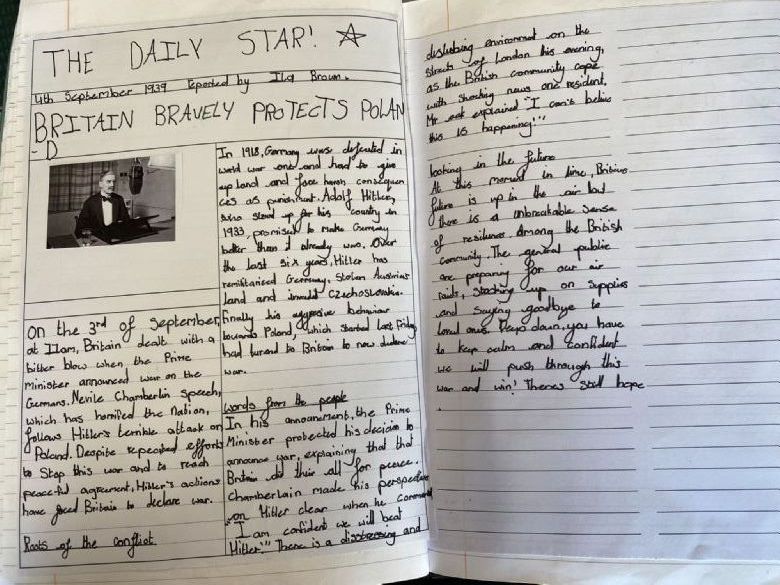 THE DAILY STAR!
4th September 1939 reported by Ila Brown.
BRITAIN BRAVELY PROTECTS POLAN
- D
On the 3rd of September,
at 11am, Britain dealt with a
bitter blow when the Prime
Minister announced war on the
Germans. Nevile Chamberlin speech,
which has horrified the nation,
follows Hitler's terrible attack on
Poland. Despite repeated efforts
to stop this war and to reach
peaceful agreement, Hitler's actions
have forced Britain to declare war.
Roots of the conflict
In 1918, Germany was defeated in
world war one and had to give
up land and face harsh consequen
ces as punishment. Adolf Hitler,
who stood up for his country in
1933, promised to make Germany
better than it already was. Over
the last six years, Hitler has
remilitarised Germany, Stolen Austrias
land and Czechoslovakia.
Finally his aggressive behaviour
towards Poland, which started last Friday
had turned to Britain to now declare
war.
words from the people
In his announcement, the Prime
Minister protected his decision to
announce war, explaining that that
Britain did their all for peace.
Chamberlain made his perspective
on Hitler clear when he
"I am confident we will beat
Hitler!" There is a distressing and
disturbing environment on the
streets of London this evening,
as the British community cope
with shocking news one resident,
Mr explained "I can't believe
this is happening!"
looking in the future
At this moment in time, Britains
future is up in the air but
there is a unbreakable sense
of resilience among the British
community. The general public
are preparing for our air
raids, stocking up on supplies
and saying goodbye to
loved ones. down, you have
to keep calm and confident
we will push through this
war and win! Theres still hope
.